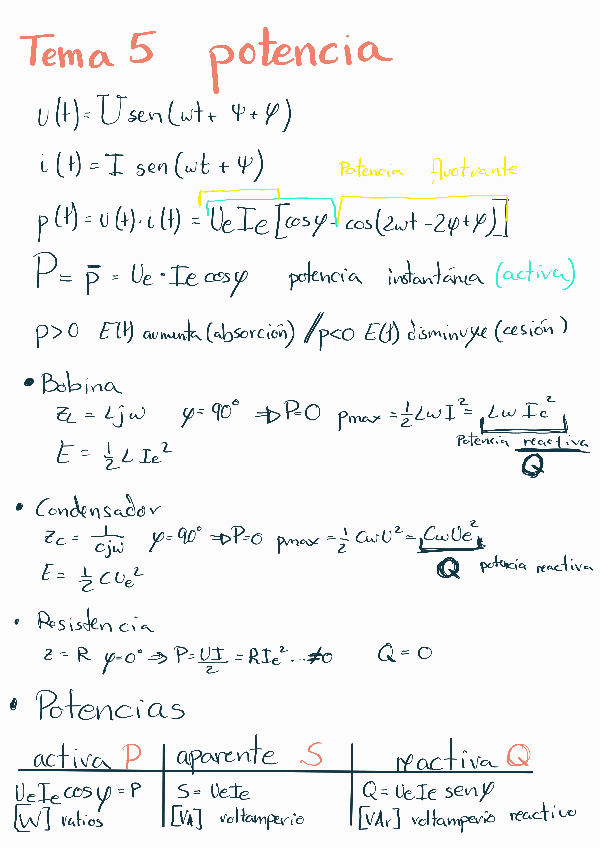 Tema 5 potencia
u(t) = U sen(wt + Ψ + φ)
i(t) = I sen(wt + Ψ)
Potencia fluctuante
p(t) = u(t) · i(t) = UeIe [cosφ - cos(2wt - 2φ + φ)]
P = p̄ = Ue · Ie cosφ potencia instantánea (activa)
p>0 E(t) aumenta (absorción) // p<0 E(t) disminuye (cesión)
• Bobina
ZL = Ljw φ = 90° ⇒ P=0 pmax = 1/2 LwI² = Lw Ie²
Potencia reactiva
E = 1/2 L Ie²
Q
• Condensador
Zc = 1/Cjw φ = 90° ⇒ P=0 pmax = 1/2 CwU² = CwUe²
E = 1/2 CUe²
Q potencia reactiva
• Resistencia
z = R φ=0° ⇒ P = UI/2 = RIe² ... ≠0 Q = 0
• Potencias
activa P aparente S reactiva Q
UeIe cosφ = P S = UeIe Q = UeIe senφ
[W] vatios [VA] voltamperio [VAr] voltamperio reactivo